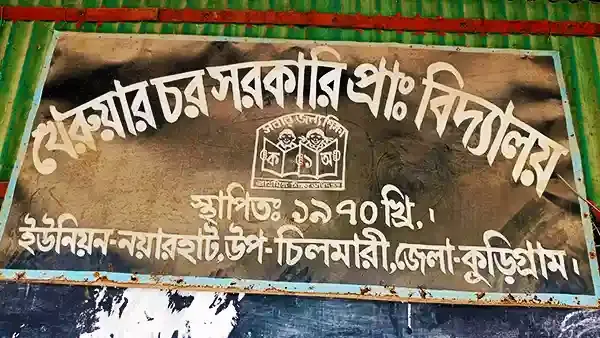 খেরুয়ার চর সরকারি প্রাঃ বিদ্যালয়
সবার জন্য শিক্ষা
ক ১ অ
স্থাপিতঃ ১৯৭০ খ্রি,।
ইউনিয়ন-নয়ারহাট,উপ-চিলমারী,জেলা-কুড়িগ্রাম।